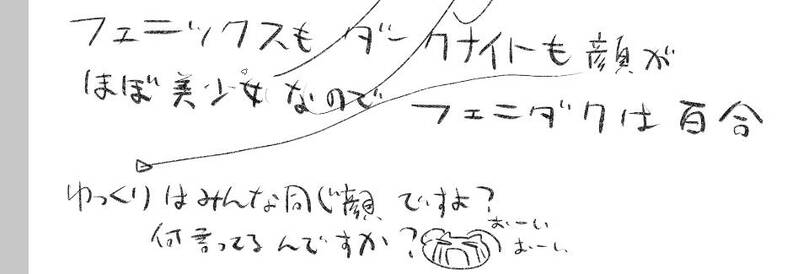 フェニックスもダークナイトも顔が
ほぼ美少女なので
フェニダクは百合
ゆっくりはみんな同じ顔ですよ?
何言ってるんですか?
おーい
おーい